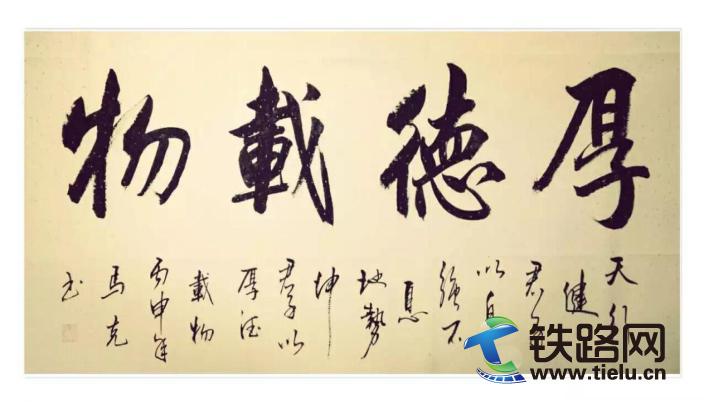 厚德載物
天行
健
君子
以自
强不
息
地勢
坤
君子以
厚德
載物
丙申年
馬克
书
铁路网
www.tielu.cn